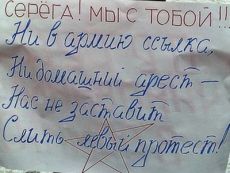 СЕРЁГА! МЫ С ТОБОЙ!!!
Ни в армию ссылка,
Ни домашний арест –
Нас не заставит
Слить левый протест!